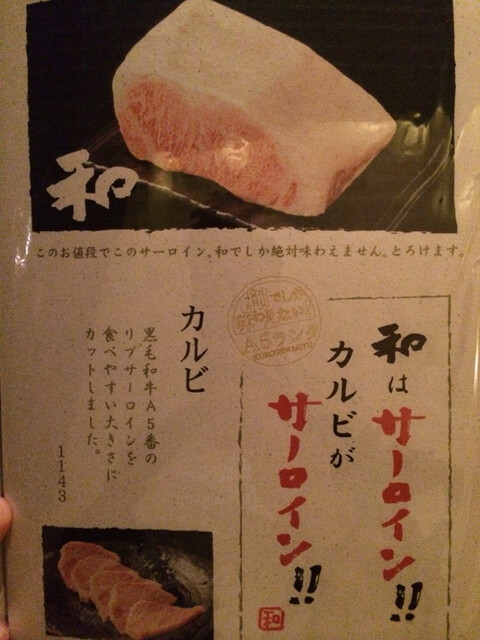 和
このお値段でこのサーロイン。和でしか絶対味わえません。とろけます。
和はサーロイン!!
カルビが
サーロイン!!
和
和でしか
味わえない
A5ランク
KUROGEWAGYU
カルビ
黒毛和牛A5番の
リブサーロインを
食べやすい大きさに
カットしました。
1143